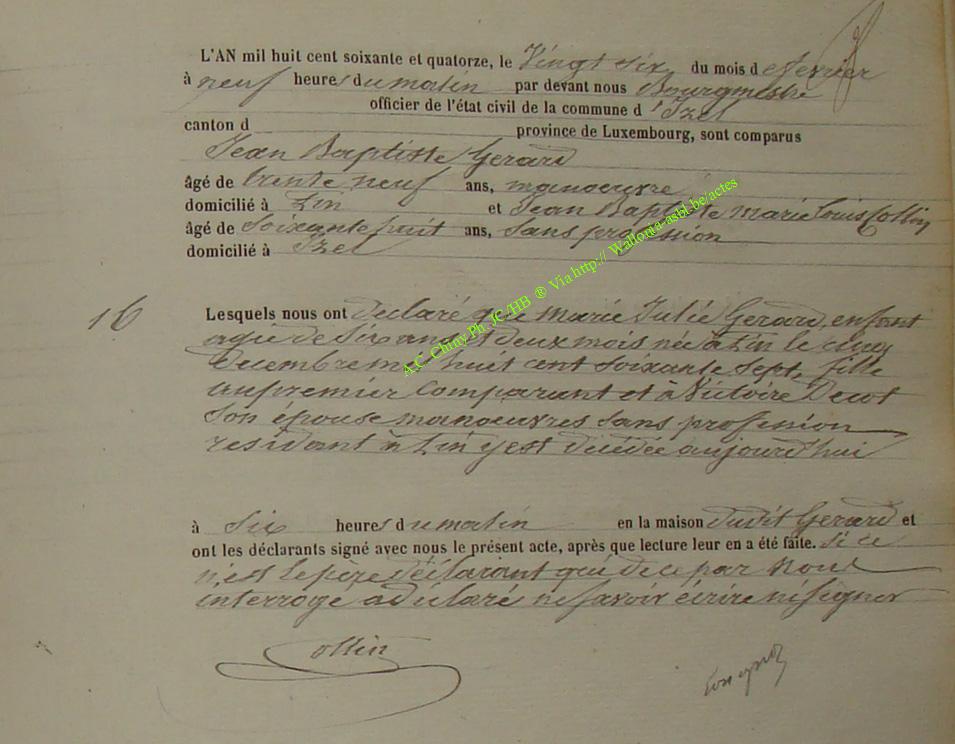 L'AN mil huit cent soixante et quatorze, le Vingt six du mois de fevrier
à neuf heures du matin par devant nous Bourgmestre
officier de l'état civil de la commune d'Izel
canton d province de Luxembourg, sont comparus
Jean Baptiste Gerard
âgé de trente neuf ans, manoeuvre
domicilié à et Jean Baptiste Marie Louis Collin
âgé de Soixante huit ans, Sans profession
domicilié à Izel
16 Lesquels nous ont declaré que Marie Julie Gerard, enfant
agée de Six ans et deux mois née à le cinq
Decembre mil huit cent soixante sept, fille
du premier Comparant et à Victoire Decot
Son épouse manoeuvres sans profession
residant à y est décédée aujourd'hui
à Six heures du matin en la maison dudit Gerard et
ont les déclarants signé avec nous le présent acte, après que lecture leur en a été faite. Si ce
n'est le père déclarant qui de ce par Nous
interrogé a déclaré ne savoir écrire ni signer
Collin
A.C. Chiny Ph JC/HB ® Via http:// Wallonia-asbl.be/actes